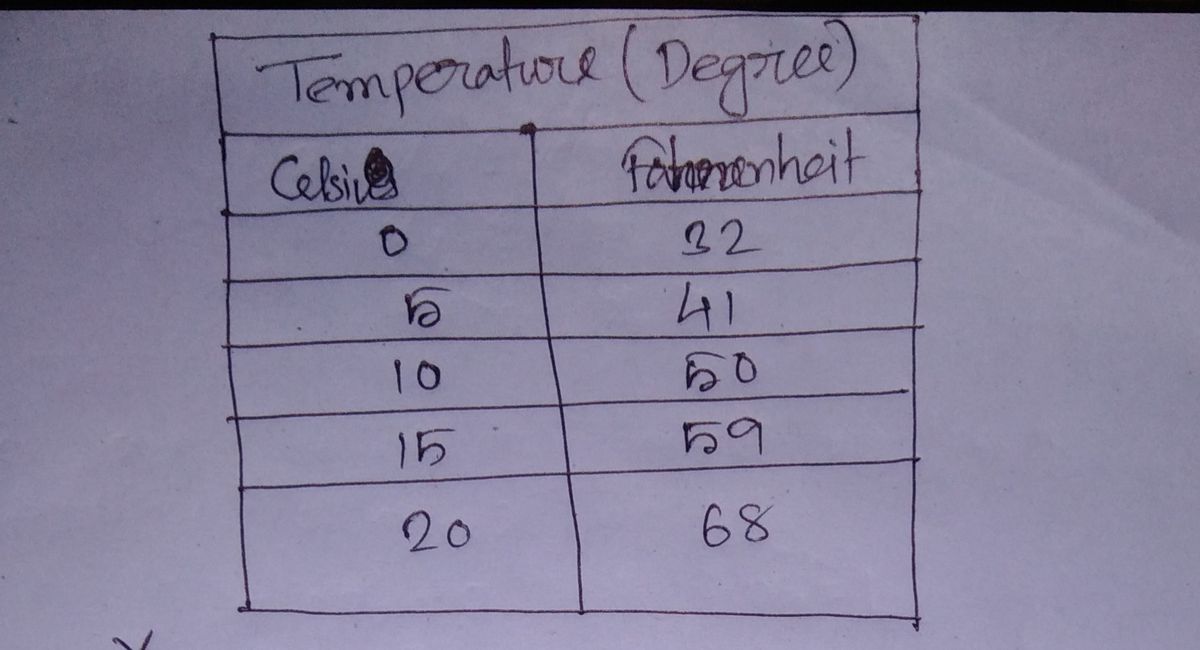 Temperature (Degree)
Celsius Fahrenheit
0 32
5 41
10 50
15 59
20 68